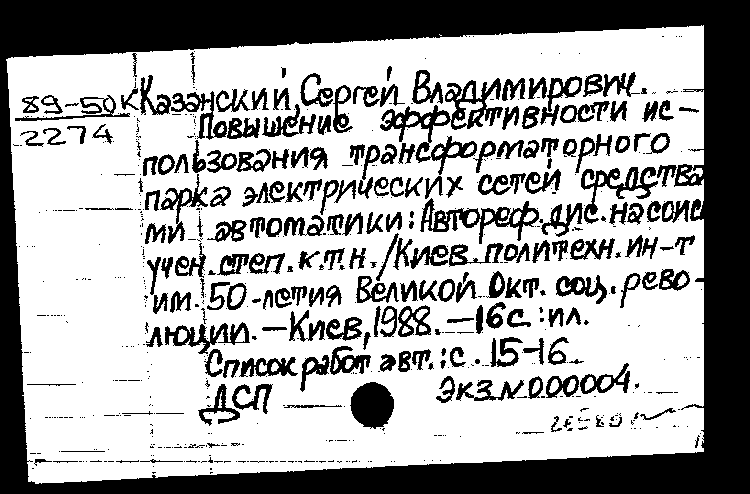 89-50к
2274
Казанский, Сергей Владимирович.
Повышение эффективности ис-
пользования трансформаторного
парка электрических сетей средства
ми автоматики: Автореф. дис. на соис
учен. степ. к.т.н. / Киев. политехн. ин-т
им. 50-летия Великой Окт. соц. рево-
люции. — Киев, 1988. — 16с. : ил.
Список работ авт.: с. 15-16.
ДСП
Экз. N 000004.